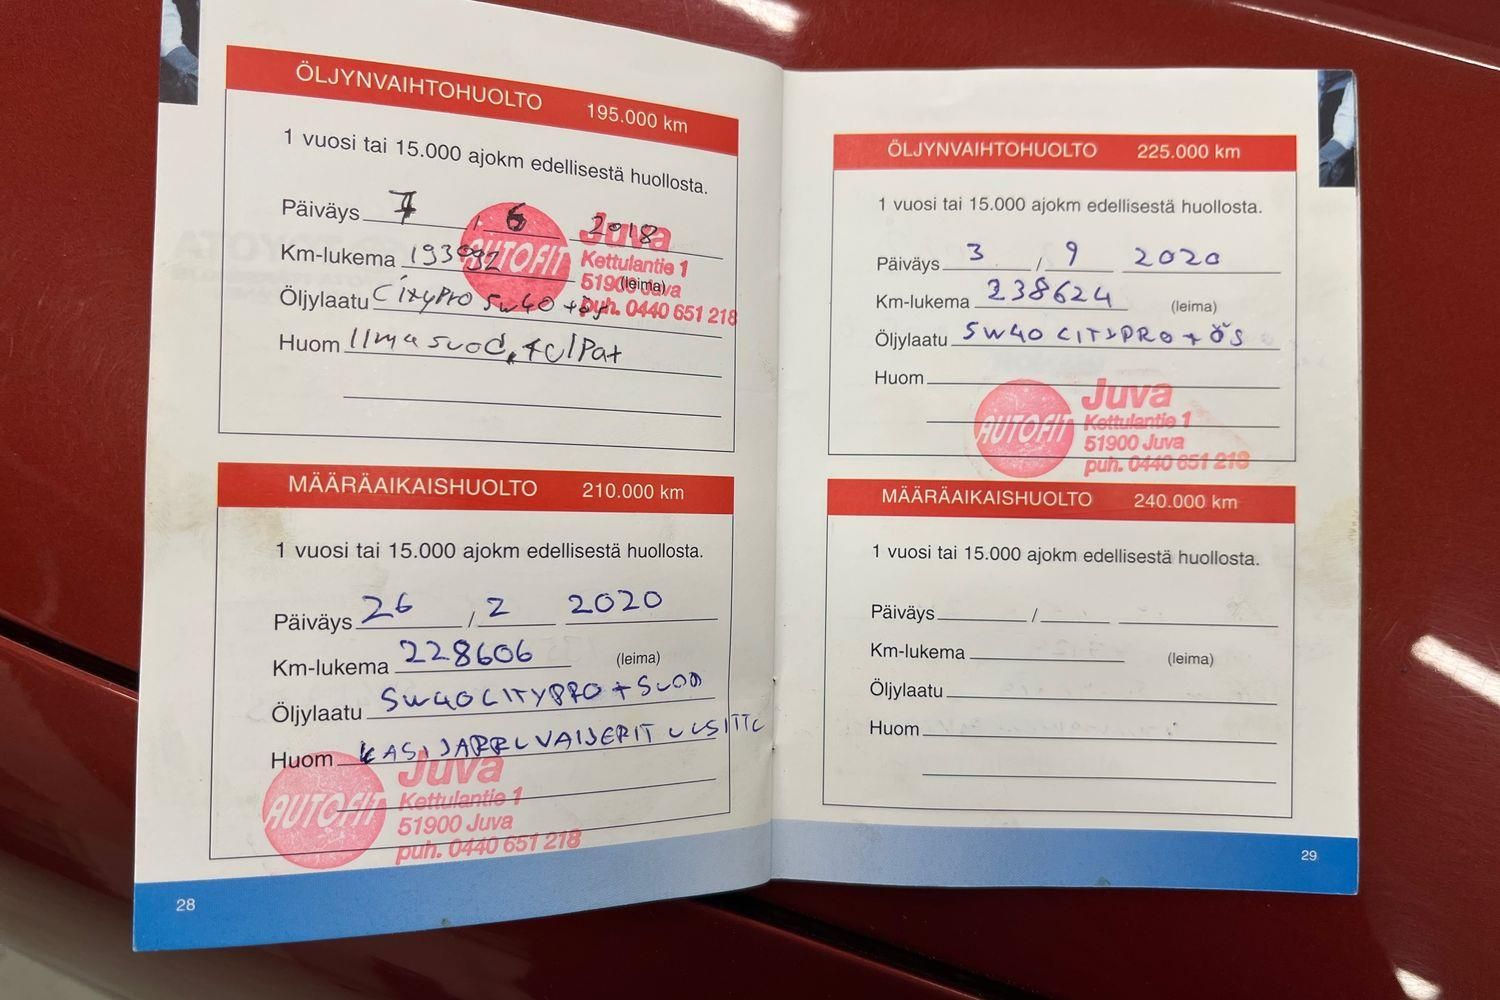 ÖLJYNVAIHTOHUOLTO 195.000 km
1 vuosi tai 15.000 ajokm edellisestä huollosta.
Päiväys 7 / 6 2018
Km-lukema 193992 (leima)
Öljylaatu Citypro 5W40 + ös
Huom Ilmasuod,
AUTOFIT
Juva
Kettulantie 1
51900 Juva
puh. 0440 651 218
MÄÄRÄAIKAISHUOLTO 210.000 km
1 vuosi tai 15.000 ajokm edellisestä huollosta.
Päiväys 26 / 2 2020
Km-lukema 228606 (leima)
Öljylaatu 5W40 CITYPRO + SUOD
Huom KÄSIJARRUVAIJERIT UUSITTU
AUTOFIT
Juva
Kettulantie 1
51900 Juva
puh. 0440 651 218
28
ÖLJYNVAIHTOHUOLTO 225.000 km
1 vuosi tai 15.000 ajokm edellisestä huollosta.
Päiväys 3 / 9 2020
Km-lukema 238624 (leima)
Öljylaatu 5W40 CITYPRO + ÖS
Huom
AUTOFIT
Juva
Kettulantie 1
51900 Juva
puh. 0440 651 218
MÄÄRÄAIKAISHUOLTO 240.000 km
1 vuosi tai 15.000 ajokm edellisestä huollosta.
Päiväys /
Km-lukema (leima)
Öljylaatu
Huom
29